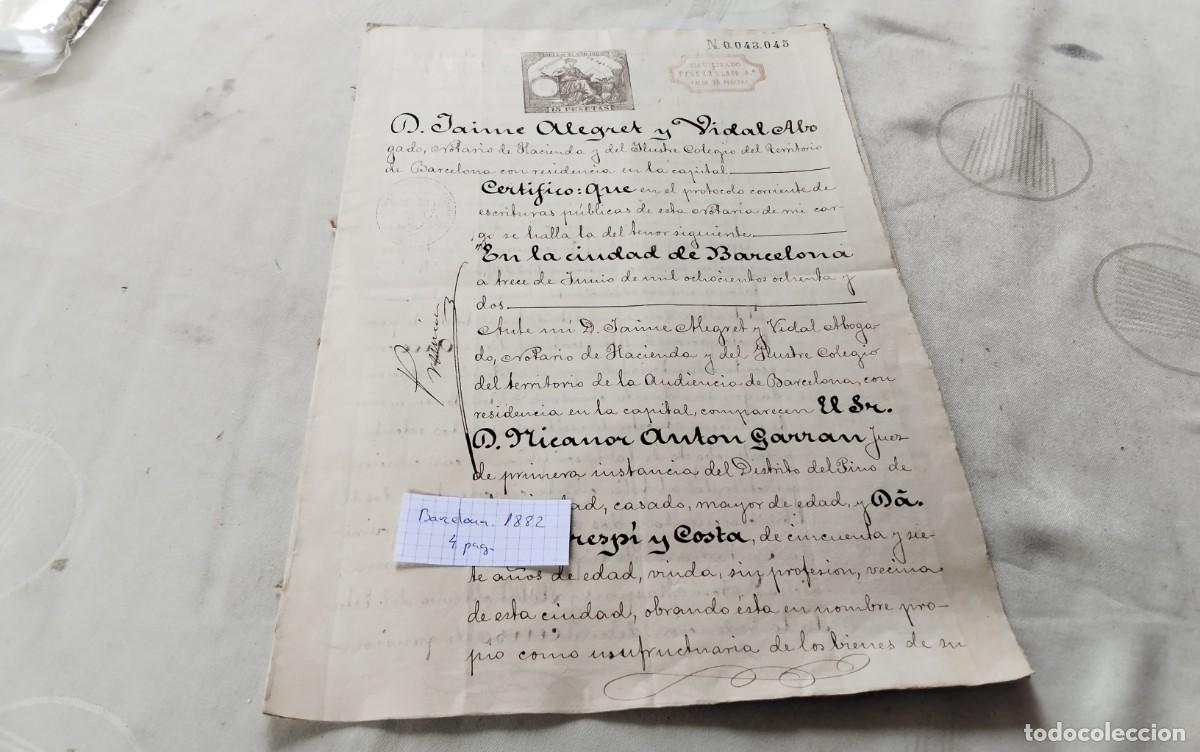 N. 0.043.045
15 PESETAS
HABILITADO
D. Jaime Alegret y Vidal Abo
gado, Notario de Hacienda y del Ilustre Colegio del territorio
de Barcelona con residencia en la capital
Certifico: Que en el protocolo corriente de
escrituras públicas de esta Notaria de mi car-
go se halla la del tenor siguiente
"En la ciudad de Barcelona
a trece de Junio de mil ochocientos ochenta y
dos
Ante mi D. Jaime Alegret y Vidal Aboga-
do, Notario de Hacienda y del Ilustre Colegio
del territorio de la Audiencia de Barcelona, con
residencia en la capital, comparecen El Sr.
D. Nicanor Anton Garran Juez
de primera instancia del Distrito del Pino de
dad, casado, mayor de edad, y Dã.
respí y Costa, de cincuenta y sie-
te años de edad, viuda, sin profesion, vecina
de esta ciudad, obrando ésta en nombre pro-
pio como usufructuaria de los bienes de su
Barcelona. 1882
4 pag.
todocoleccion